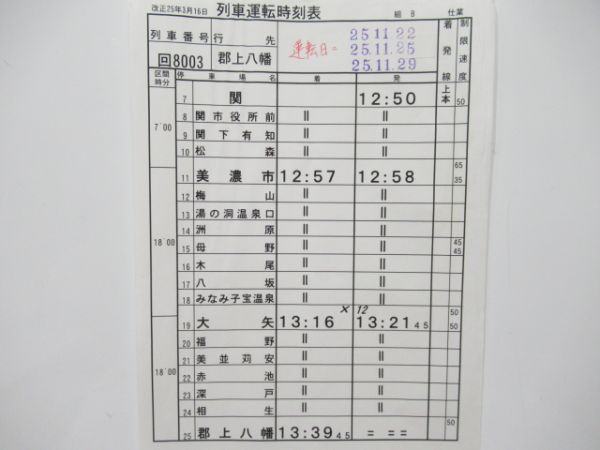 改正25年3月16日 列車運転時刻表 組 8 仕業
列車番号 行先 着発線 制限速度
回8003 郡上八幡 運転日= 25.11.22
25.11.25
25.11.29
区間時分 停車場名 着 発 上本
7 関 12:50 50
8 関市役所前 || ||
7'00 9 関下有知 || ||
10 松森 || ||
65
11 美濃市 12:57 12:58 35
12 梅山 || ||
13 湯の洞温泉口 || ||
14 洲原 || ||
18'00 15 母野 || || 45 45
16 木尾 || ||
17 八坂 || ||
18 みなみ子宝温泉 || ||
× 12 50
19 大矢 13:16 13:21 45 50
20 福野 || ||
21 美並苅安 || ||
18'00 22 赤池 || ||
23 深戸 || ||
24 相生 || ||
50
25 郡上八幡 13:39 45 = = =